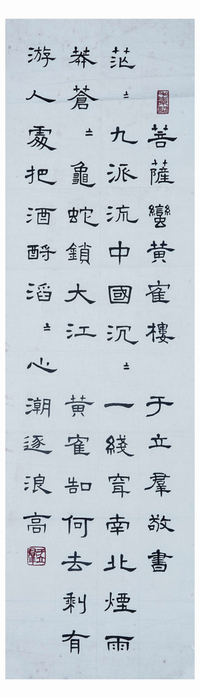 菩薩蠻黃寉樓 于立羣敬書
茫〻九派流中國沉〻一綫穿南北煙雨
莽蒼〻龜蛇鎖大江黃寉知何去剩有
游人處把酒酹滔〻心潮逐浪高